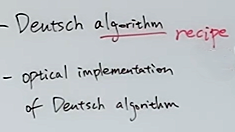 - Deutsch algorithm recipe
- optical implementation
of Deutsch algorithm